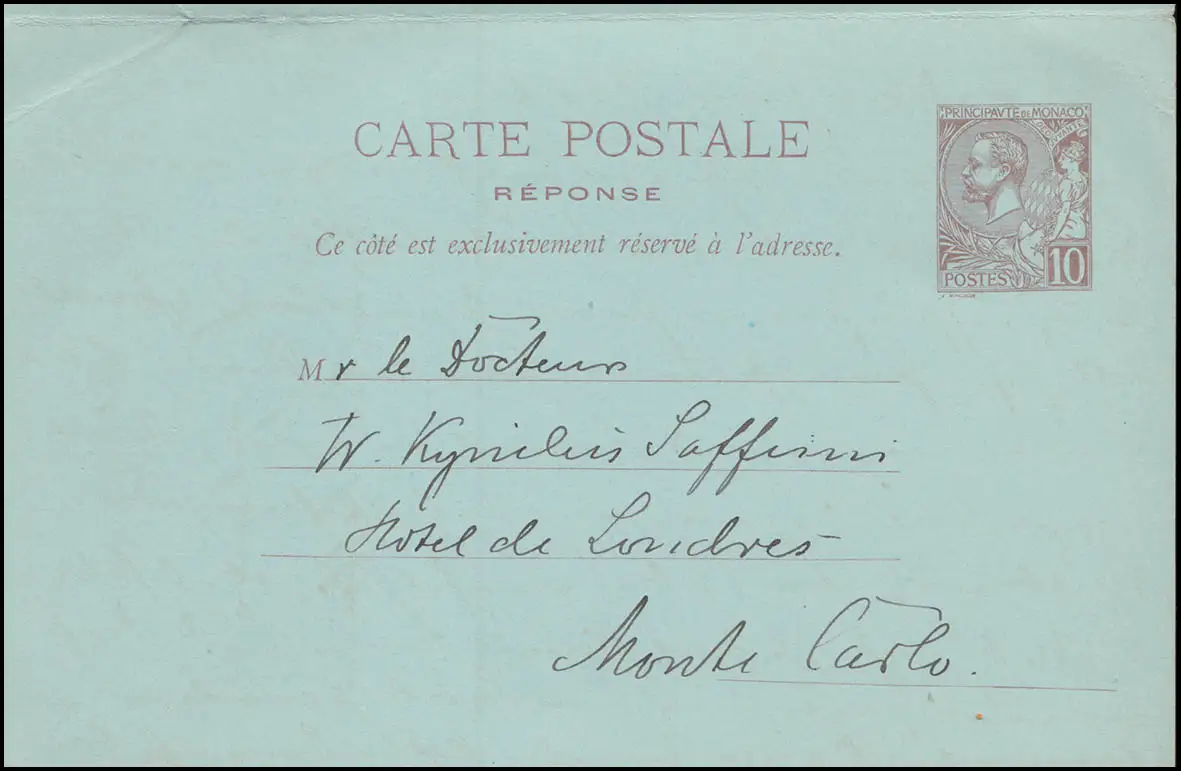 PRINCIPAVTE DE MONACO
CARTE POSTALE
RÉPONSE
Ce côté est exclusivement réservé à l'adresse.
POSTES 10
Mr le Docteur
W.
Hôtel de Londres
Monte Carlo.